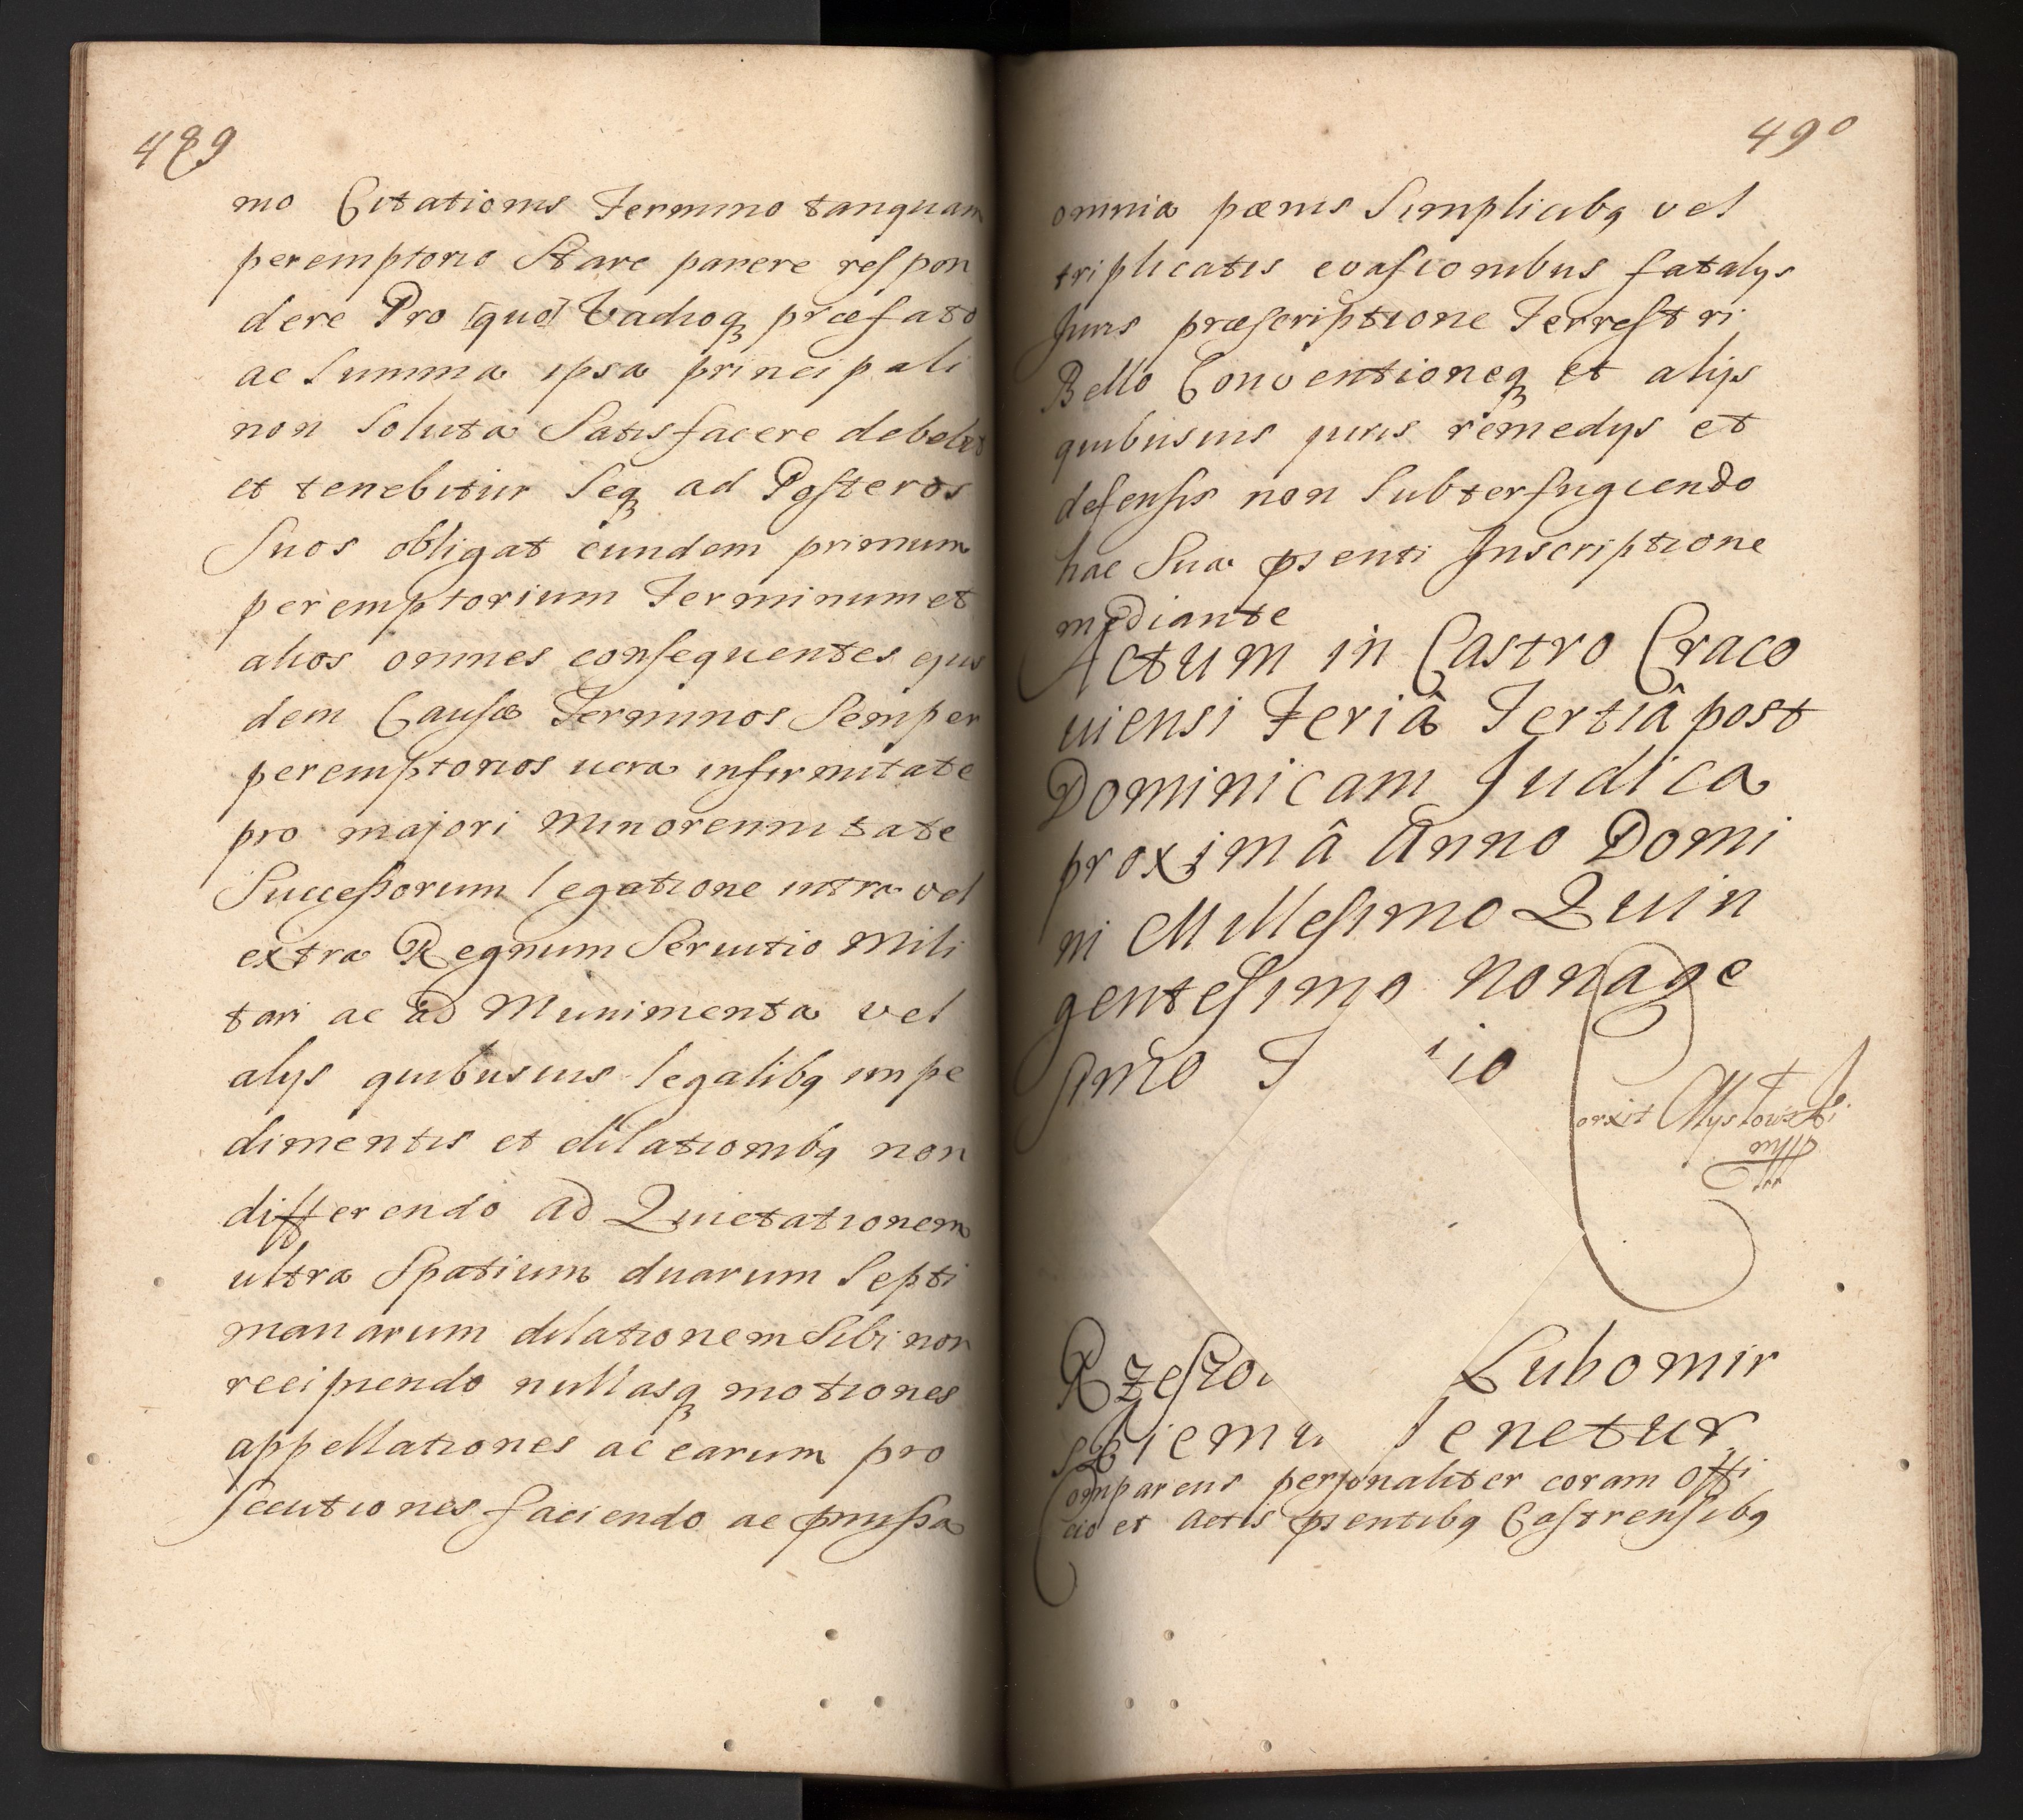 489
mo Citationis Termino tanquam
peremptorio Stare parere respon
dere Pro [quo] Vadioq praefato
ac Summa ipsa principali
non Soluta Satisfacere debebit
et tenebitur Seq ad Posteros
Suos obligat eundem primum
peremptorium Terminum et
alios omnes consequentes ejus
dem Causae Terminos Semper
peremptorios uera infirmitate
pro majori Minorennitate
Successorum legatione intra vel
extra Regnum Seruitio Mili
tari ac ad Munimenta vel
alys quibusuis legalibq impe
dimentis et dilationibq non
differendo ad Quietationem
ultra Spatium duarum Septi
manarum dilationem Sibi non
recipiendo nullasq motiones
appellationes ac earum pro
secutiones faciendo ac pmissa
490
omnia paenis Simplicibq vel
triplicatis evasionibus fatalys
Juris praescriptione Terrestri
Bello Conventioneq et alijs
quibusuis juris remedys et
defensis non Subterfugiendo
hac Sua psenti Inscriptione
mediante
Actum in Castro Craco
uiensi Feriâ Tertiâ post
Dominicam Judica
proximâ Anno Domi
ni Millesimo Quin
gentesimo Nonage
simo T io
orxit
Rzeszo Lubomir
skiemu Tenetur
Comparens personaliter coram Offi
cio et Actis psentibq Castrensibq